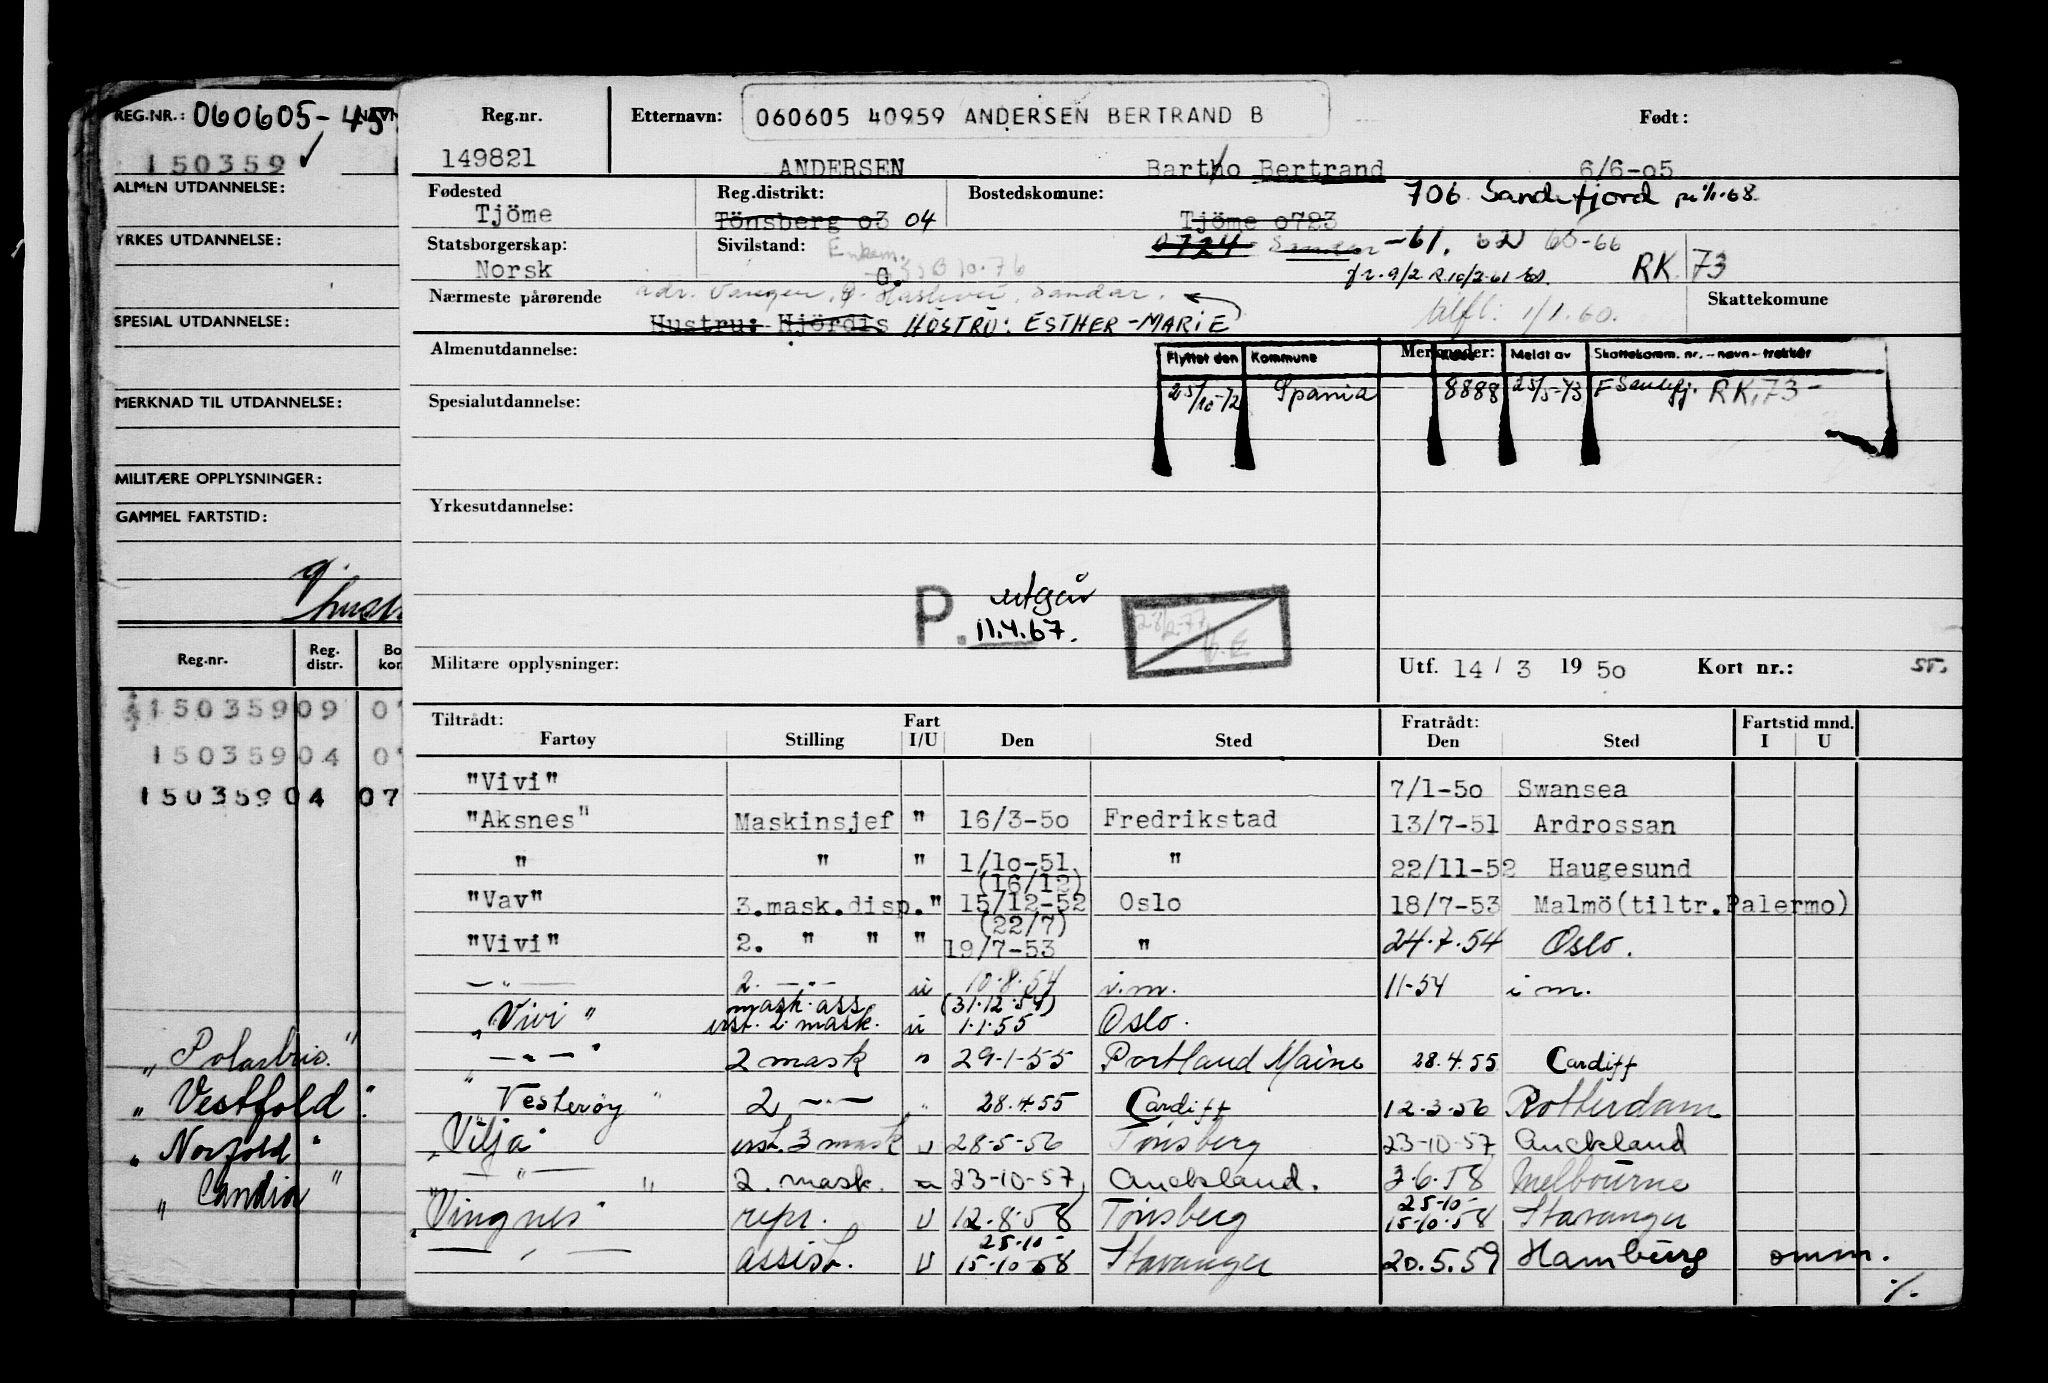 REG.NR.: 060605-45
150359 ✓
ALMEN UTDANNELSE:
YRKES UTDANNELSE:
SPESIAL UTDANNELSE:
MERKNAD TIL UTDANNELSE:
MILITÆRE OPPLYSNINGER:
GAMMEL FARTSTID:
Reg.nr. Reg. distr. Bo kor
150359 09 0
150359 04 0
150359 04 07
"Polarbris"
"Vestfold"
"Norfold"
"Candia"
Reg.nr. Etternavn: 060605 40959 ANDERSEN BERTRAND B Født:
149821 ANDERSEN Bartho Bertrand 6/6-05
Fødested Reg.distrikt: Bostedskomune: 706 Sandefjord pr 1/1-68.
Tjöme Tönsberg o3 04 Tjöme o723
Statsborgerskap: Sivilstand: Enkem. 0724 Sandar -61. 62 65-66
Norsk G. RK 73
Nærmeste pårørende adr. Vangen, Sandar. Skattekomune
Hustru: Hjördis HUSTRU: ESTHER-MARIE Utfl. 1/1.60.
Almenutdannelse: Merknader:
Flyttet den Kommune Meldt av Skattekomm. nr. - navn - trekkår
25/10-72 Spania 8888 25/5-73 F Sandefj. RK,73 -
Spesialutdannelse:
Yrkesutdannelse:
P. utgår
11.4.67.
28/2-77
Militære opplysninger: Utf. 14 / 3 1950 Kort nr.: ST.
Tiltrådt: Fart Fratrådt: Fartstid mnd.
Fartøy Stilling I/U Den Sted Den Sted I U
"Vivi" 7/1-50 Swansea
"Aksnes" Maskinsjef " 16/3-50 Fredrikstad 13/7-51 Ardrossan
" " " 1/10-51 " 22/11-52 Haugesund
(16/12)
"Vav" 3.mask.disp." 15/12-52 Oslo 18/7-53 Malmö(tiltr.Palermo)
(22/7)
"Vivi" 2. " " " 19/7-53 " 24.7.54 Oslo.
— " — 2. — " — u 10.8.54 i.m. 11-54 i m.
mask.ass. (31.12.54)
"Vivi" 2. mask. u 1.1.55 Oslo.
— " — 2 mask " 29-1-55 Portland Maine 28.4.55 Cardiff
"Vesterøy" 2 — " — " 28.4.55 Cardiff 12.3.56 Rotterdam
"Vilja" 3 mask u 28-5-56 Tönsberg 23-10-57 Auckland
— " — 2. mask. 23-10-57 Auckland. 3.6.58 Melbourne
25-10-
"Vingnes" repr. U 12.8.58 Tönsberg 15-10-58 Stavanger
25-10-
— " — assist. U 15-10-58 Stavanger 20.5.59 Hamburg omm.
·/.